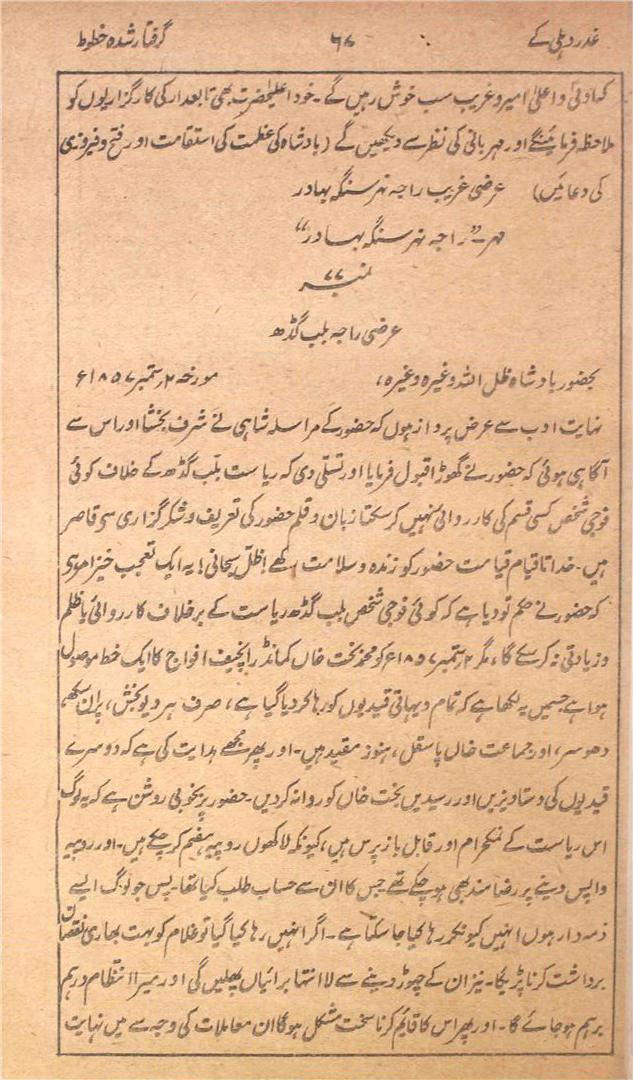 غدر دہلی کے ۶۷ گرفتار شدہ خطوط
کہ ادنیٰ و اعلیٰ امیر و غریب سب خوش رہیں گے۔ خود اعلیحضرت بھی تابعدار کی کارگزاریوں کو
ملاحظہ فرمائینگے اور مہربانی کی نظر سے دیکھیں گے (بادشاہ کی عظمت کی استقامت اور فتح و فیروزی
کی دعائیں) عرضی غریب راجہ نہر سنگہ بہادر
مہر۔ "راجہ نہر سنگہ بہادر"
نمبر ۷۷
عرضی راجہ بلب گڈھ
بحضور بادشاہ ظل اللہ وغیرہ وغیرہ، مورخہ ۲ ستمبر ۱۸۵۷ء
نہایت ادب سے عرض پرداز ہوں کہ حضور کے مراسلہ شاہی نے شرف بخشا اور اس سے
آگاہی ہوئی کہ حضور نے گھوڑا قبول فرمایا اور تسلی دی کہ ریاست بلب گڈھ کے خلاف کوئی
فوجی شخص کسی قسم کی کارروائی نہیں کر سکتا زبان و قلم حضور کی تعریف و شکر گزاری سے قاصر
ہیں۔ خدا تا قیام قیامت حضور کو زندہ و سلامت رکھے! ظل سبحانی! یہ ایک تعجب خیز امر ہے
کہ حضور نے حکم تو دیا ہے کہ کوئی فوجی شخص بلب گڈھ ریاست کے برخلاف کارروائی یا ظلم
و زیادتی نہ کر سکے گا، مگر ۲ ستمبر ۱۸۵۷ء کو محمد بخت خاں کمانڈر انچیف افواج کا ایک خط موصول
ہوا ہے جسمیں یہ لکھا ہے کہ تمام دیہاتی قیدیوں کو رہا کر دیا گیا ہے، صرف ہر دیو بخش، پران سکھ،
دھوسر، اور جماعت خاں پاسقل، ہنوز مقید ہیں۔ اور پھر مجھے ہدایت کی ہے کہ دوسرے
قیدیوں کی دستاویزیں اور رسیدیں بخت خاں کو روانہ کر دیں۔ حضور پر بخوبی روشن ہے کہ یہ لوگ
اس ریاست کے نمکحرام اور قابل باز پرس ہیں، کیونکہ لاکھوں روپیہ ہضم کر چکے ہیں۔ اور روپیہ
واپس دینے پر رضامند بھی ہو چکے تھے جس کا ان سے حساب طلب کیا تھا۔ پس جو لوگ ایسے
ذمہ دار ہوں انہیں کیونکر رہا کیا جا سکتا ہے۔ اگر انہیں رہا کیا گیا تو غلام کو بہت بھاری نقصان
برداشت کرنا پڑیگا۔ نیز ان کے چھوڑ دینے سے لا انتہا برائیاں پھیلیں گی اور میرا انتظام درہم
برہم ہو جائے گا۔ اور پھر اس کا قایم کرنا سخت مشکل ہو گا ان معاملات کی وجہ سے میں نہایت